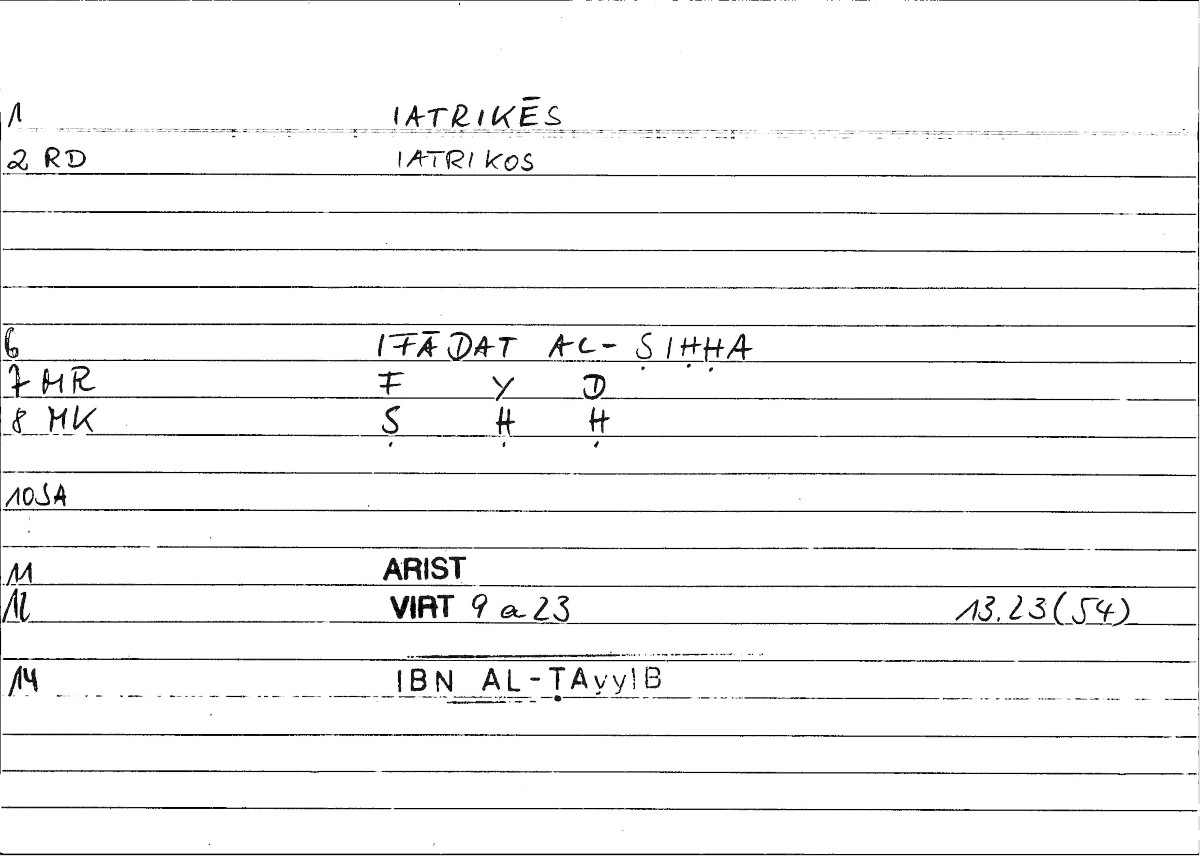 1 IATRIKĒS
2 RD IATRIKOS
6 IFĀDAT AL-ṢIḤḤA
7 MR F Y D
8 MK Ṣ Ḥ Ḥ
10 SA
11 ARIST
12 VIRT 9 a 23 13.23(54)
14 IBN AL-ṬAyyIB